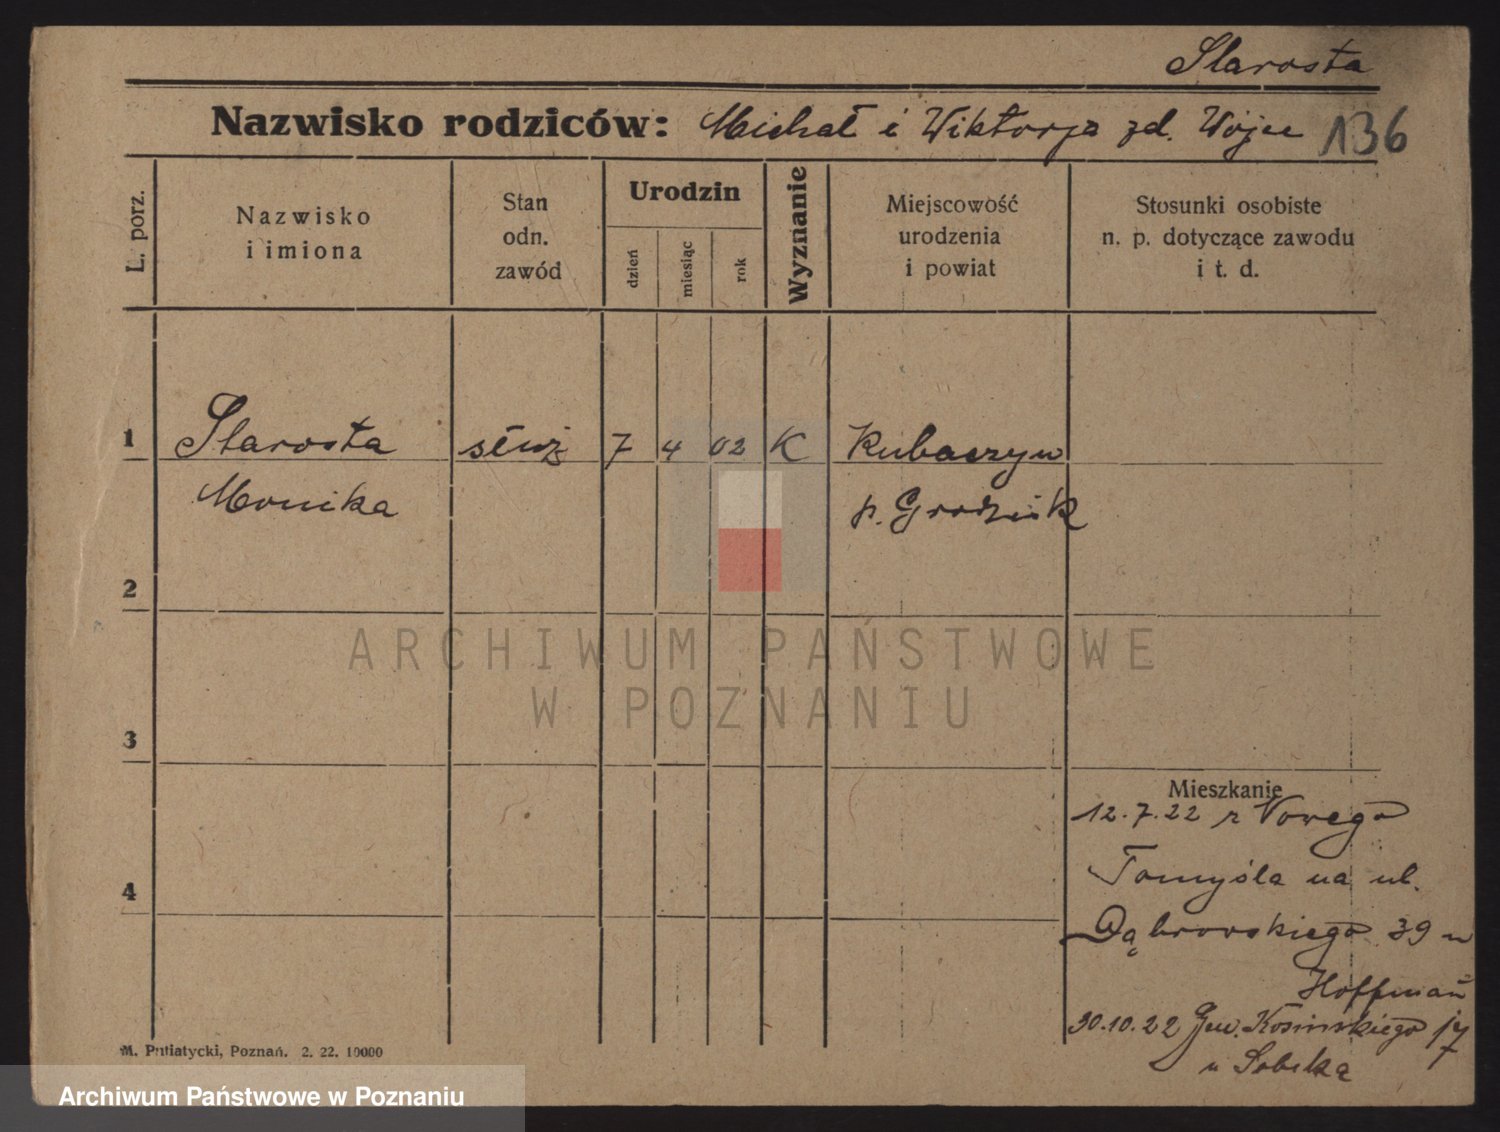 Starosta
Nazwisko rodziców: Michał i Wiktorja zd. Wojc 136
L. porz.
Nazwisko
i imiona
Stan
odn.
zawód
Urodzin
dzień
miesiąc
rok
Wyznanie
Miejscowość
urodzenia
i powiat
Stosunki osobiste
n. p. dotyczące zawodu
i t. d.
1 Starosta służ 7 4 02 K Kubaczyn
Monika p. Grodzisk
2
ARCHIWUM PAŃSTWOWE
W POZNANIU
3
Mieszkanie
12.7.22 z Nowego
Tomyśla na ul.
4
Dąbrowskiego 39 u
Hoffman
30.10.22 Gen. Kosińskiego 17
u Sobeką
M. Putiatycki, Poznań. 2. 22. 10000
Archiwum Państwowe w Poznaniu